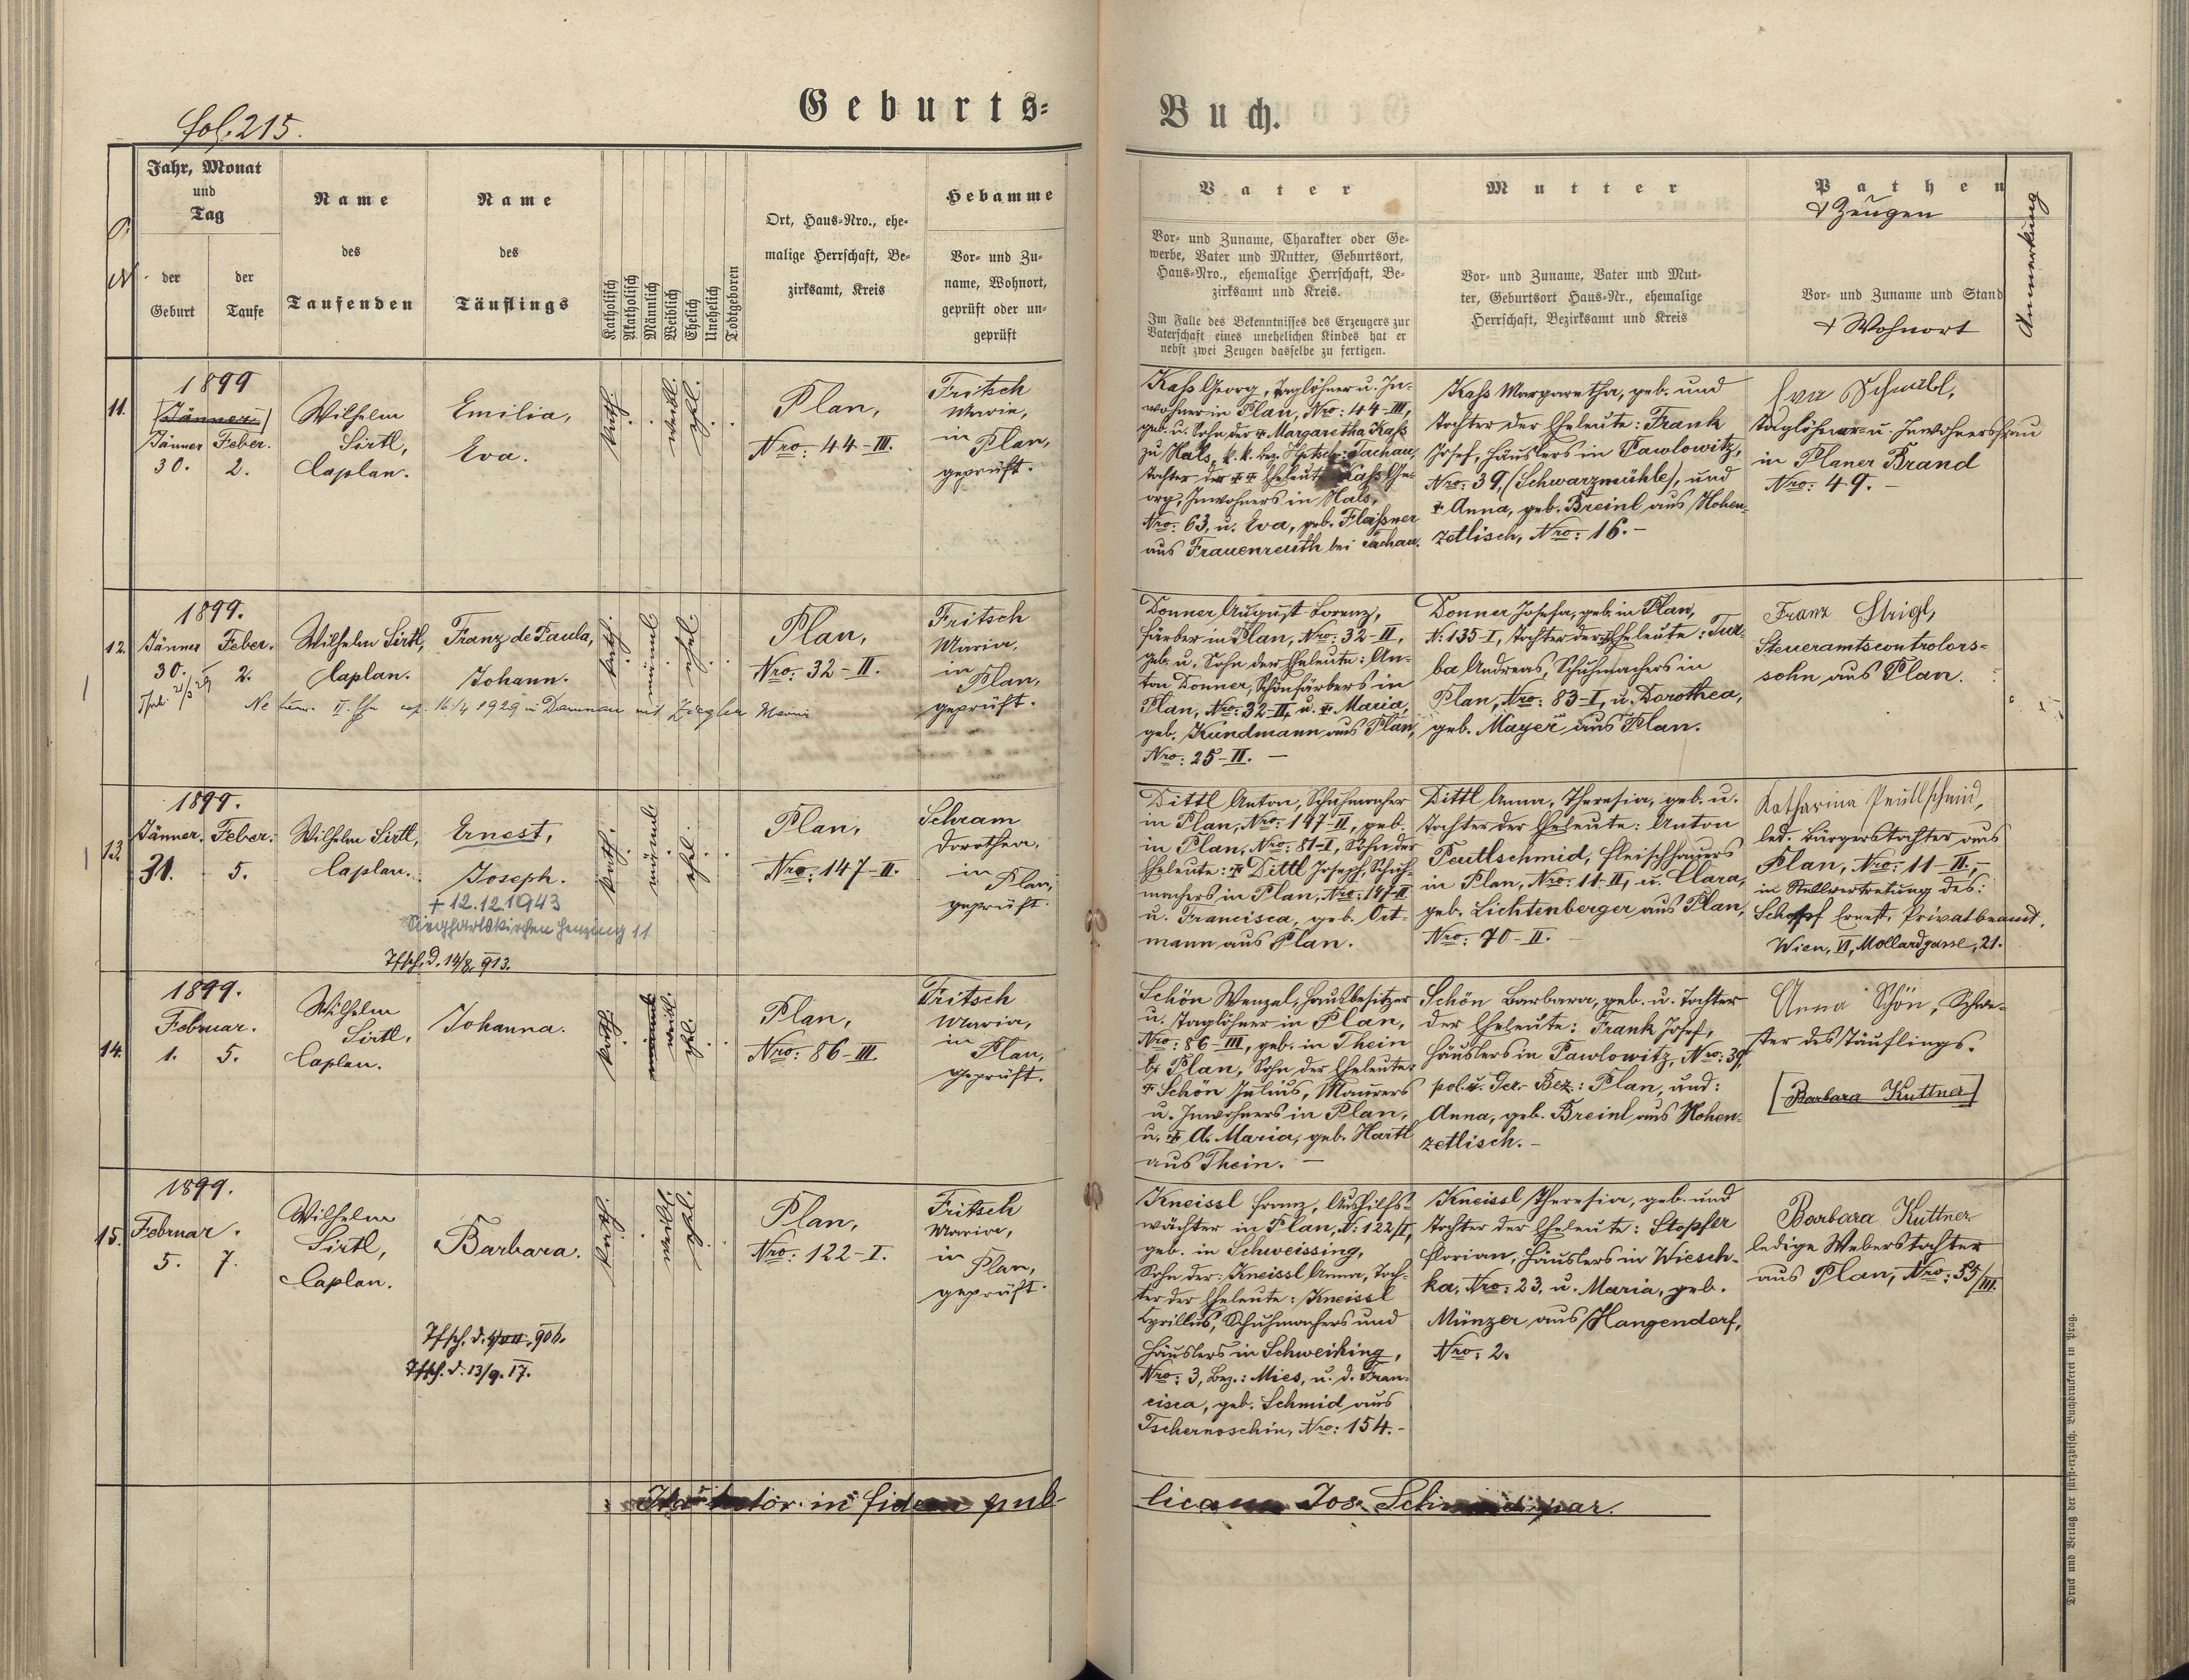 Geburts=
Buch.
fol. 215.
Jahr, Monat
und
Tag
der
Geburt
der
Taufe
Name
des
Taufenden
Name
des
Täuflings
Katholisch
Akatholisch
Männlich
Weiblich
Ehelich
Unehelich
Todtgeboren
Ort, Haus=Nro., ehe=
malige Herrschaft, Be=
zirksamt, Kreis
Hebamme
Vor= und Zu=
name, Wohnort,
geprüft oder un=
geprüft
Vater
Vor= und Zuname, Charakter oder Ge=
werbe, Vater und Mutter, Geburtsort,
Haus=Nro., ehemalige Herrschaft, Be=
zirksamt und Kreis.
Im Falle des Bekenntnisses des Erzeugers zur
Vaterschaft eines unehelichen Kindes hat er
nebst zwei Zeugen dasselbe zu fertigen.
Mutter
Vor= und Zuname, Vater und Mut=
ter, Geburtsort Haus=Nr., ehemalige
Herrschaft, Bezirksamt und Kreis
Pathen
& Zeugen
Vor= und Zuname und Stand
& Wohnort
Anmerkung
11.
1899
[Jänner]
Jänner Feber.
30. 2.
Wilhelm
Sirtl,
Caplan.
Emilia,
Eva.
kath.
weibl.
ehel.
Plan,
Nro: 44-III.
Fritsch
Maria,
in Plan,
geprüft.
Kaß Georg, Taglöhner u. In=
wohner in Plan, Nro: 44-III,
geb. u. Sohn der † Margaretha Kaß
zu Hals, k. k. bez. Hptsch: Tachau,
Tochter der †† Eheleute Kaß Ge=
org, Inwohners in Hals,
Nro: 63, u. Eva, geb. Flaißner
aus Frauenreuth bei Tachau.
Kaß Margaretha, geb. und
Tochter der Eheleute: Frank
Josef, Häuslers in Pawlowitz,
Nro: 39, (Schwarzmühle), und
† Anna, geb. Breinl aus Hohen=
zetlisch, Nro: 16.-
Eva Schmibl,
Taglöhner= u. Inwohnersfrau
in Planer Brand
Nro: 49.-
12.
1899.
Jänner Feber.
30. 2.
Wilhelm Sirtl,
Caplan.
Franz de Paula,
Johann.
kath.
männl.
ehel.
Plan,
Nro: 32-II.
Fritsch
Maria,
in Plan,
geprüft.
cop. 16/4 1929 in Damnau mit Ziegler Maria
Donner August Lorenz,
Färber in Plan, Nro: 32-II,
geb. u. Sohn der Eheleute: An=
ton Donner, Schönfärbers in
Plan, Nro: 32-II, u. † Maria,
geb. Kundmann aus Plan,
Nro: 25-II. -
Donner Josefa, geb. in Plan,
N: 135-I, Tochter der Eheleute: Tur=
ba Andreas, Schuhmachers in
Plan, Nro: 83-I, u. Dorothea,
geb. Mayer aus Plan.
Franz Strigl,
Steueramtscontrolors=
sohn aus Plan.
13.
1899.
Jänner. Feber.
31. 5.
Wilhelm Sirtl,
Caplan.
Ernest,
Joseph.
+ 12.12.1943
Sieghartskirchen Henzing 11
Tfsch. d. 14/8. 913.
kath.
männl.
ehel.
Plan,
Nro: 147-II.
Schram
Dorothea,
in Plan,
geprüft.
Dittl Anton, Schuhmacher
in Plan, Nro: 147-II, geb.
in Plan, Nro: 81-I, Sohn der
Eheleute: † Dittl Joseph, Schuh=
machers in Plan, Nro: 147-II
u. Francisca, geb. Ort=
mann aus Plan.
Dittl Anna, Theresia, geb. u.
Tochter der Eheleute: Anton
Peutlschmid, Fleischhauers
in Plan, Nro: 11-II, u. Clara,
geb. Lichtenberger aus Plan,
Nro: 70-II.
Katharina Peutlschmid,
led. Bürgerstochter aus
Plan, Nro: 11-II,-
in Stellvertretung des:
Schopf Ernest, Privatbeamt.
Wien, VI, Mollardgasse, 21.
14.
1899.
Februar.
1. 5.
Wilhelm
Sirtl,
Caplan.
Johanna.
kath.
männl.
weibl.
ehel.
Plan,
Nro: 86-III
Fritsch
Maria,
in Plan,
geprüft.
Schön Wenzel, Hausbesitzer
u. Taglöhner in Plan,
Nro: 86-III, geb. in Thein
b. Plan, Sohn der Eheleute:
† Schön Julius, Maurers
u. Inwohners in Plan,
u. † A. Maria, geb. Hartl
aus Thein. -
Schön Barbara, geb. u. Tochter
der Eheleute: Frank Josef,
Häuslers in Pawlowitz, Nro: 39,
pol. u. Ger.- Bez.: Plan, und:
Anna, geb. Breinl aus Hohen=
zetlisch.-
Anna Schön, Schwe=
ster des Täuflings.
[Barbara Kuttner]
15.
1899.
Februar.
5. 7.
Wilhelm
Sirtl,
Caplan.
Barbara.
Tfsch. d. 13/9. 17.
kath.
weibl.
ehel.
Plan,
Nro: 122-I.
Fritsch
Maria,
in Plan,
geprüft.
Kneissl Franz, Aushilfs=
wächter in Plan, N: 122/I,
geb. in Schweissing,
Sohn der: Kneissl Anna, Toch=
ter der Eheleute: Kneissl
Cyrillus, Schuhmachers und
Häuslers in Schweißing,
Nro: 3, Bez.: Mies, u. d. Fran=
cisca, geb. Schmid aus
Tschernoschin, Nro: 154.-
Kneissl Theresia, geb. und
Tochter der Eheleute: Stopfer
Florian, Häuslers in Wiesch=
ka, Nro: 23, u. Maria, geb.
Münzer aus Hangendorf,
Nro: 2.
Barbara Kuttner
ledige Weberstochter
aus Plan, Nro: 55/III.
in fidem pub
licam Jos. Schmid par.
Druck und Verlag der fürst=erzbisch. Buchdruckerei in Prag.